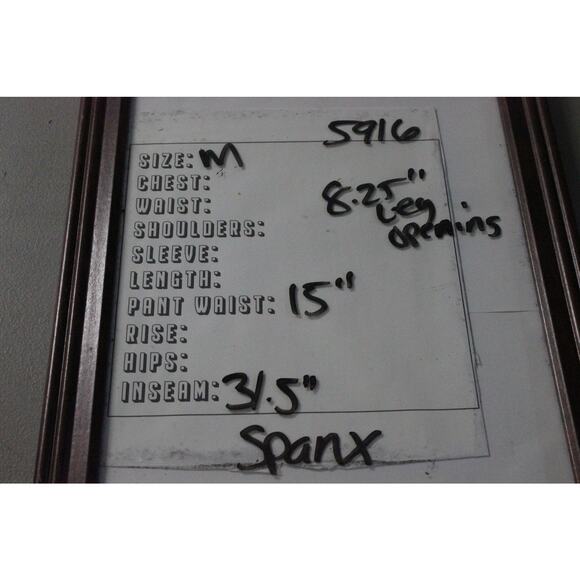 5916
SIZE: M
CHEST:
WAIST:
8.25"
Leg
opening
SHOULDERS:
SLEEVE:
LENGTH:
PANT WAIST: 15"
RISE:
HIPS:
INSEAM: 31.5"
Spanx